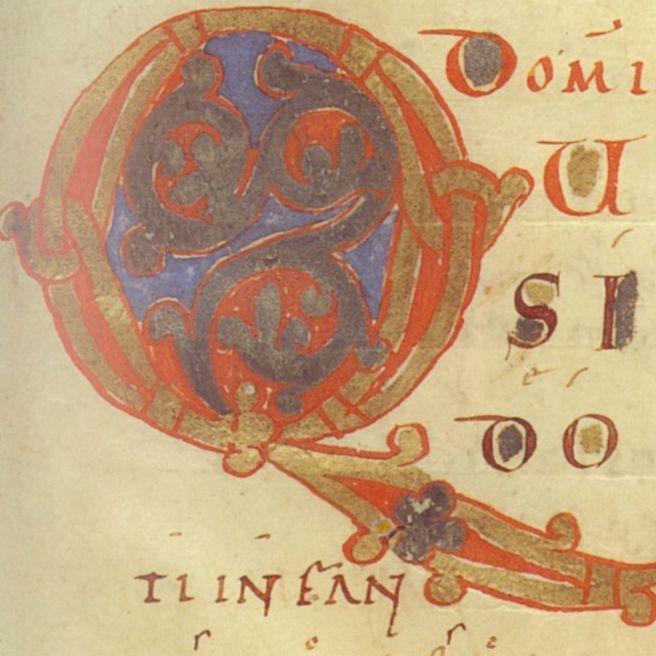 Q
DOMI
U
SI
DO
TI INFAN